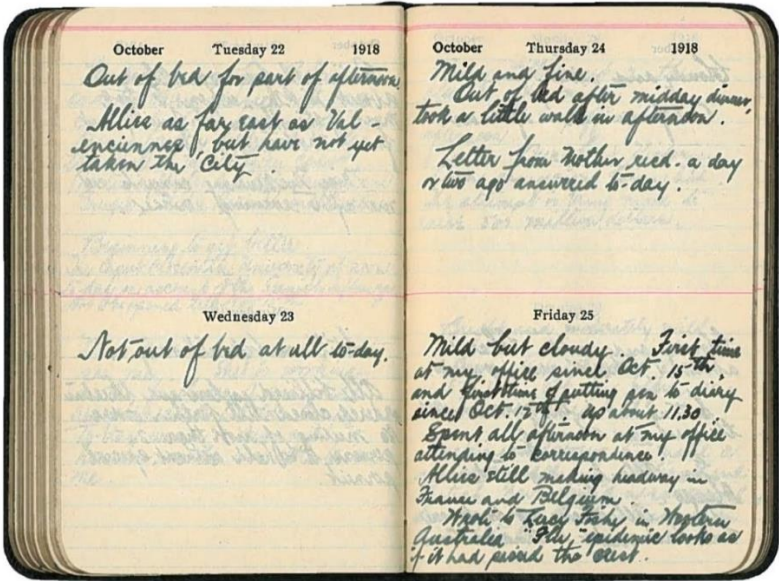 October Tuesday 22 1918
Out of bed for part of afternoon.
Allies as far east as Val-
enciennes, but have not yet
taken the City.
Wednesday 23
Not out of bed at all to-day.
October Thursday 24 1918
Mild and fine.
Out of bed after midday dinner,
took a little walk in afternoon.
Letter from Mother recd. a day
or two ago answered to-day.
Friday 25
Mild but cloudy. First time
at my office since Oct. 15th,
and first time of putting pen to diary
since Oct. 17th up about 11.30.
Spent all afternoon at my office
attending to correspondence.
Allies still making headway in
France and Belgium
Wrote to Lucy in Western
Australia "Flu" epidemic looks as
if it had passed the crest.